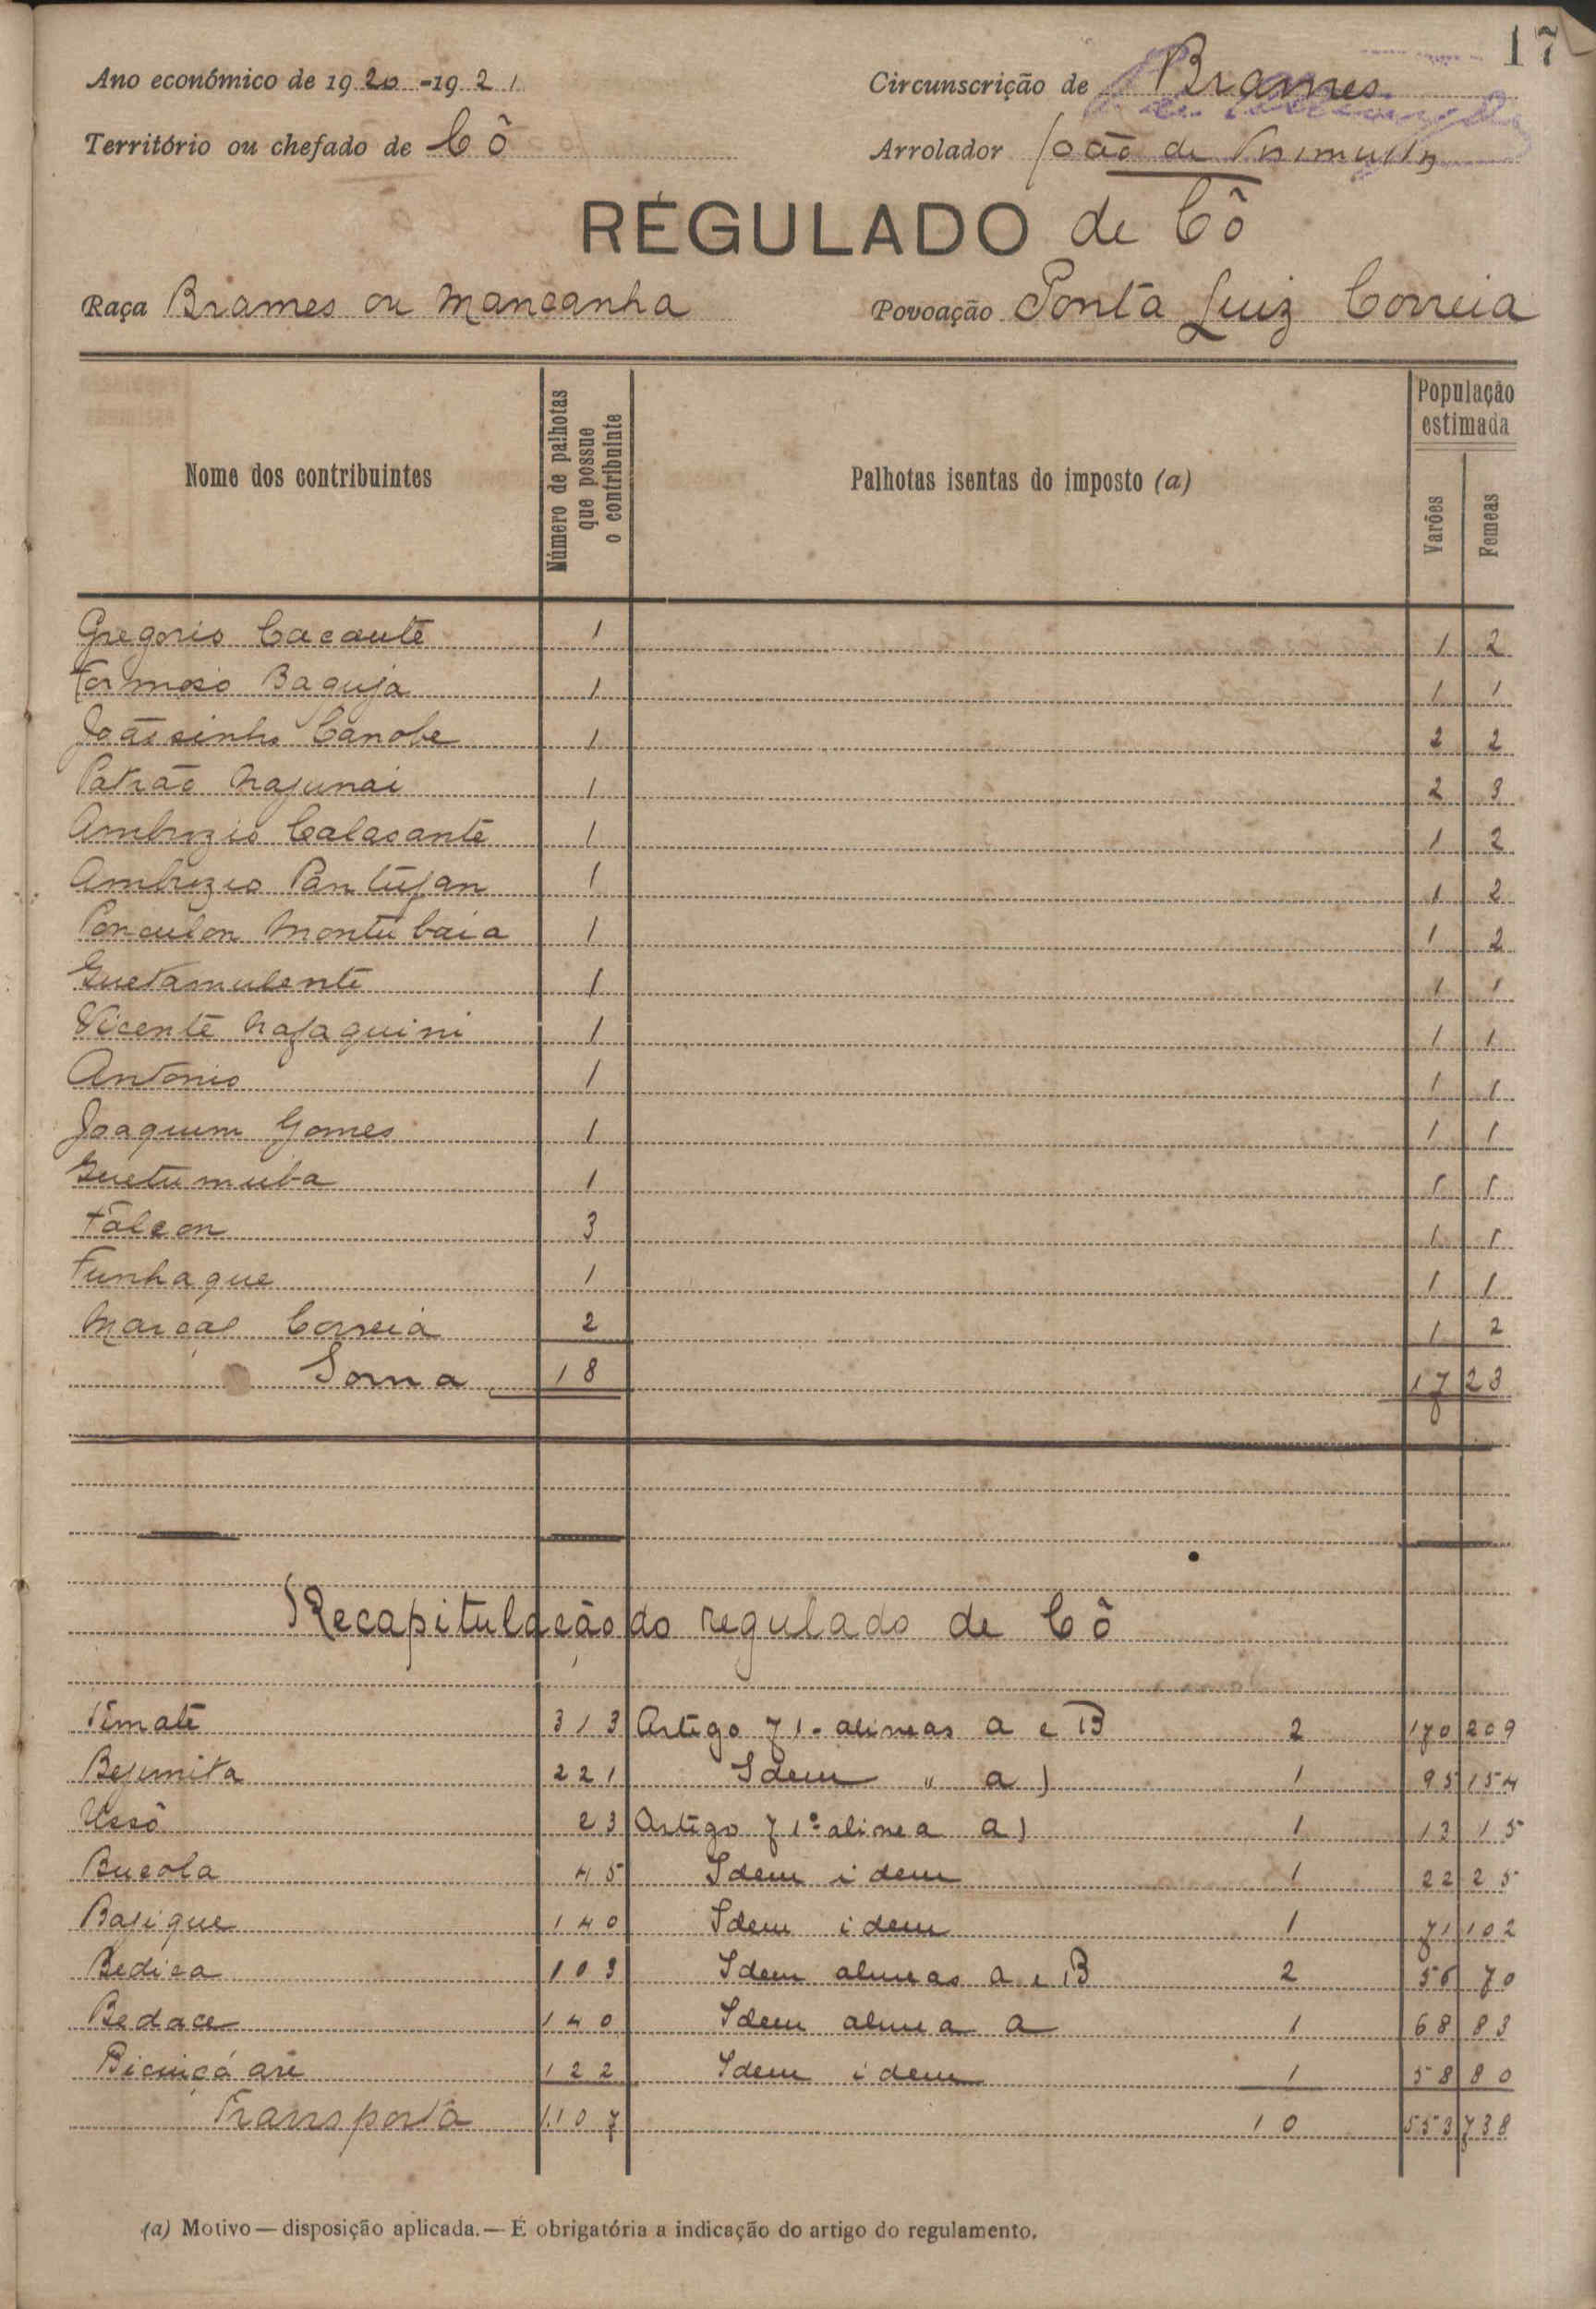 17
Ano económico de 1920-1921 Circunscrição de Brames
Território ou chefado de Cô Arrolador João de
REGULADO de Cô
Raça Brames ou Mancanha Povoação Ponta Luiz Correia
Nome dos contribuintes Número de palhotas que possue o contribuinte Palhotas isentas do imposto (a) População estimada Varões Femeas
Gregorio Cacante 1 1 2
Formoso Baguja 1 1 1
Joãosinho Canobe 1 2 2
Patrão Najunai 1 2 3
Ambrozio Calacante 1 1 2
Ambrozio Pantufan 1 1 2
Montubaia 1 1 2
Guetamulente 1 1 1
Vicente Nafaquini 1 1 1
Antonio 1 1 1
Joaquim Gomes 1 1 1
Guetumuba 1 1 1
Falcon 3 1 1
Funhaque 1 1 1
Marcal Correia 2 1 2
Soma 18 17 23
Recapitulação do regulado de Cô
Timate 313 Artigo 71- alineas a e B 2 170 209
Bejimita 221 Idem " a) 1 95 154
Ussô 23 Artigo 71º alinea a) 1 13 15
Bucola 45 Idem idem 1 22 25
Bajique 140 Idem idem 1 71 102
Bedica 103 Idem alineas a e B 2 56 70
Bedace 140 Idem alinea a 1 68 83
122 Idem idem 1 58 80
Transporta 1.107 10 553 738
(a) Motivo — disposição aplicada. — É obrigatória a indicação do artigo do regulamento.